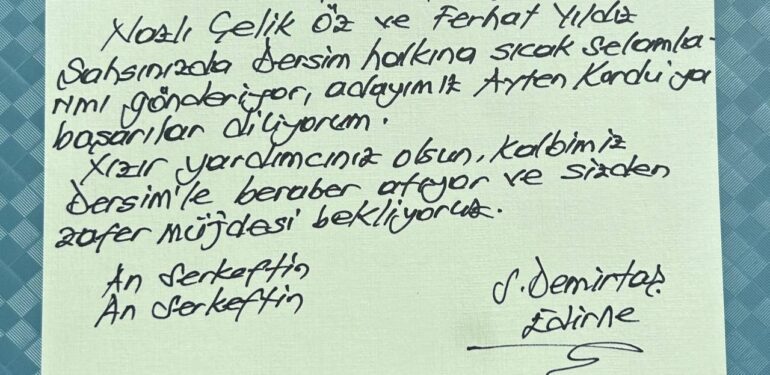 Nazlı Çelik Öz ve Ferhat Yıldız
Şahsınızda Dersim halkına sıcak selamla-
rımı gönderiyor, adayımız Ayten Kordu'ya
başarılar diliyorum.
Xızır yardımcınız olsun, kalbimiz
Dersim'le beraber atıyor ve sizden
zafer müjdesi bekliyoruz.
An Serkeftin
An Serkeftin
S. Demirtaş
Edirne